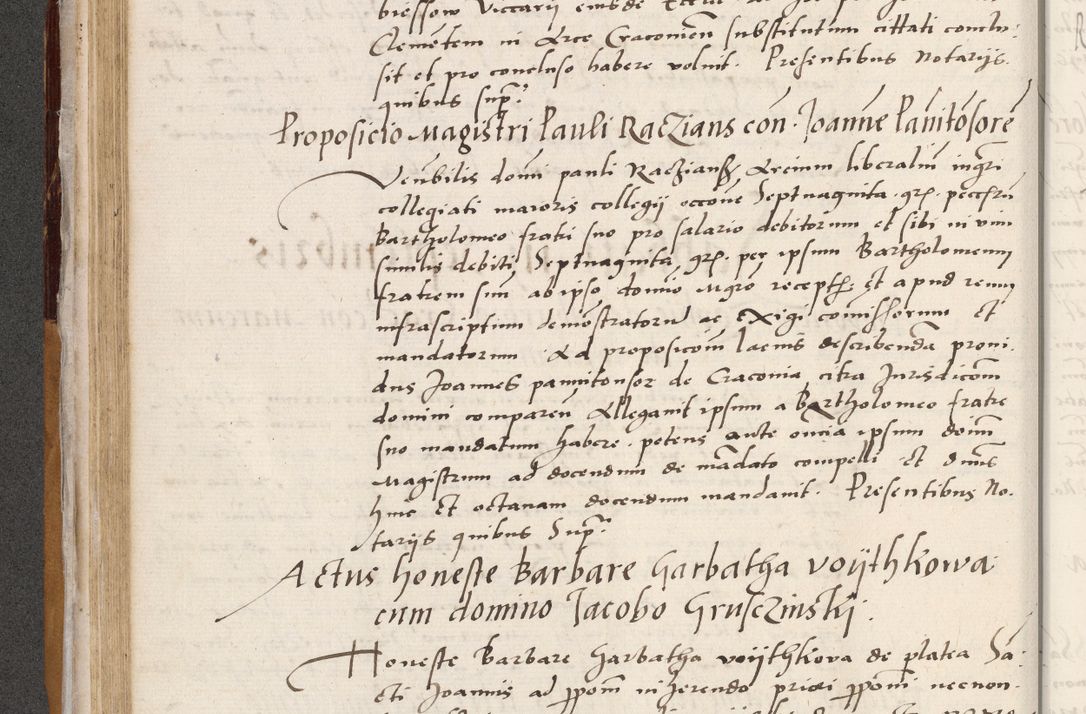 bressow Viccarij eiusde
Clementem in Arce Craconien substitutum cittati conclu:
sit et pro concluso habere voluit. Presentibus Notarijs
quibus supr:
Proposicio Magistri Pauli Raczians con. Joanne Panitosore
Venbilis domi pauli Racziansz Arcium liberaliu ingri
collegiati maioris collegij occone Septuaginta grs. peccsru
Bartholomeo fratri suo pro salario debitorum et sibi in vim
similis debiti Septuaginta grs. per ipsum Bartholomeum
fratrem suu ab ipso domo Mgro recept: et apud reum
infrascriptum demostratoru ac exigi comissorum Et
mandatorum Ad proposicom lacius describenda proui:
dus Joannes pannitonsor de Craconia citra Jurisdicom
domini comparen Allegauit ipsum a Bartholomeo fratre
suo mandatum habere. potens ante oia ipsum domi
Magistrum ad docendum de madato compelli Et dnus
hmc Et octauam docendum mandauit. Presentibus No.
tarijs quibus Supr:
Actus honeste Barbare Garbatha voijthkowa
cum domino Jacobo Grusczinskij.
Honeste Barbare Garbatha voijthkova de platea Sa:
cti Joannis ad ppom inherendo priori ppomi necnon.